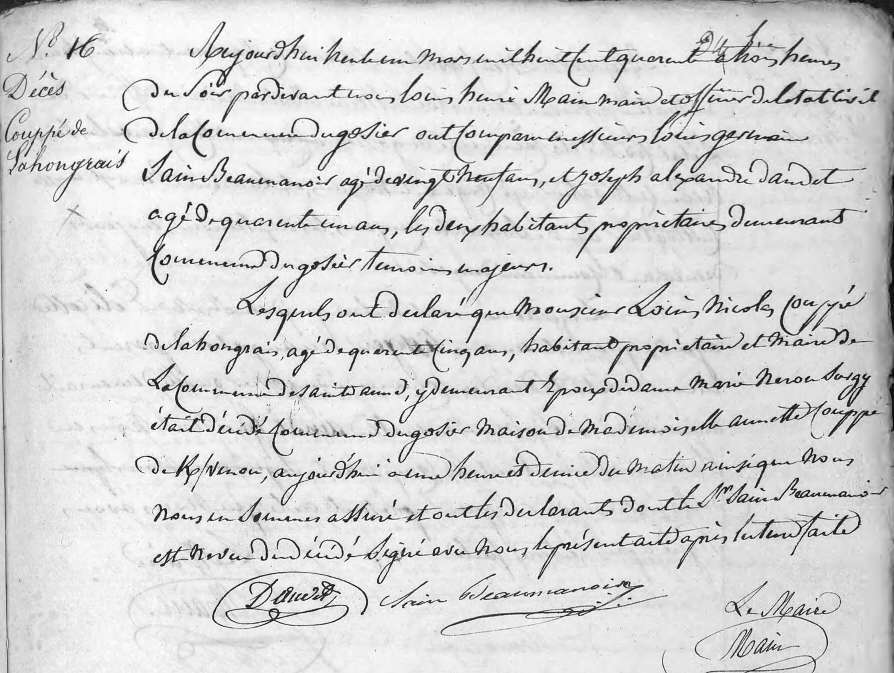 N.o 16
Décès
Couppé de
Lahongrais
Aujourd'hui trente un mars mil huit cent quarente à trois heures
du Soir pardevant nous louis henri Main maire et officier de l'état civil
de la Commune du gosier ont comparu messieurs louis germain
Sain Beaumanoir agé de vingt neuf ans, et Joseph alexandre daudet
agé de quarente un ans, les deux habitants propriétaires demeurant
Commune du gosier temoins majeurs.
Lesquels ont declaré que Monsieur Louis Nicolas Couppé
de lahongrais, agé de quarente Cinq ans, habitant propriétaire et Maire de
La Commune de sainte anne, y demeurant Epoux de dame Marie Surgy
était décédé Commune du gosier Maison de Mademoiselle annette Couppé
de K/venou, aujourd'hui à une heure et demie du matin ainsi que Nous
nous en Sommes assuré et ont les déclarants dont le Sr Sain Beaumanoir
est neveu du décédé Signé avec Nous le présent acte après lecture faite
Daudet Sain Beaumanoir
Le Maire
Main